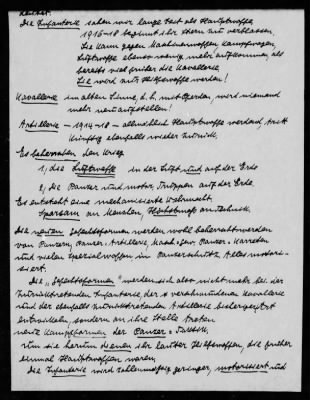 Die Infanterie sahen wir lange Zeit als Hauptwaffe
1916-18 beginnt ihr Stern zu verblassen.
Sie kann gegen Maschinenwaffen Kampfwagen,
Luftwaffe ebenso wenig mehr aufkommen als
bereits viel früher die Kavallerie.
Sie wird zur Hilfswaffe werden!
Kavallerie im alten Sinne, d.h. mit Pferden, wird niemand
mehr neu aufstellen!
Artillerie – 1914-18 – allmählich Hauptwaffe werdend, tritt
künftig ebenfalls wieder zurück.
Es beherrschen den Krieg
1, die Luftwaffe in der Luft und auf der Erde
2, die Panzer und motor. Truppen auf der Erde.
Es entsteht eine mechanisierte Wehrmacht.
Sparsam an Menschen, Höchstmass an Technik.
Die neuen Gefechtsformen werden wohl beherrscht werden
von Panzern, Panzer-Artillerie, Panzer-
und vielen Spezialwaffen im Panzerschutz. Alles motori-
siert.
Die „Gefechtsformen" werden sich also nicht mehr bei der
zurücktretenden Infanterie, der verschwundenen Kavallerie
und der ebenfalls zurücktretenden Artillerie
entwickeln, sondern an ihre Stelle treten
neue Kampfformen der Panzer-Taktik.
Um sie herum dienen ihr lauter Hilfswaffen, die früher
einmal Hauptwaffen waren.
Die Infanterie wird zahlenmäßig geringer, motorisiert und